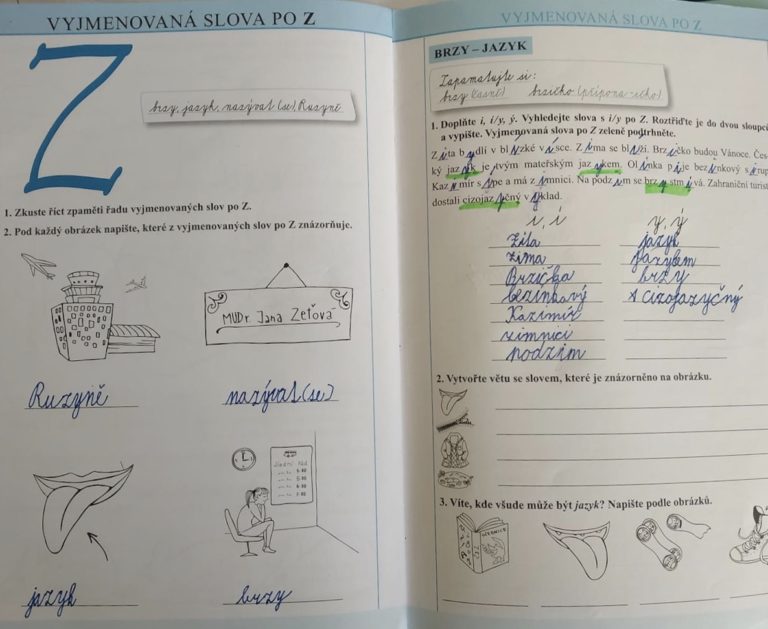 VYJMENOVANÁ SLOVA PO Z
Z
brzy, jazyk, nazývat (se), Ruzyně
1. Zkuste říct zpaměti řadu vyjmenovaných slov po Z.
2. Pod každý obrázek napište, které z vyjmenovaných slov po Z znázorňuje.
MUDr. Jana Zeťová
Ruzyně
nazývat (se)
Jízdní řád
jazyk
brzy
VYJMENOVANÁ SLOVA PO Z
BRZY – JAZYK
Zapamatujte si:
brzy (časně) brzičko (přípona -ičko)
1. Doplňte i, í/y, ý. Vyhledejte slova s i/y po Z. Roztřiďte je do dvou sloupců
a vypište. Vyjmenovaná slova po Z zeleně podtrhněte.
Zita bydlí v blízké vísce. Zima se blíží. Brzičko budou Vánoce. Čes-
ký jazyk je tvým mateřským jazykem. Olinka pije bezinkový sirup.
Kazimír sípe a má zimnici. Na podzim se brzy stmívá. Zahraniční turisté
dostali cizojazyčný výklad.
i, í y, ý
Zita jazyk
zima jazykem
Brzička brzy
bezinkový cizojazyčný
Kazimír
zimnici
podzim
2. Vytvořte větu se slovem, které je znázorněno na obrázku.
3. Víte, kde všude může být jazyk? Napište podle obrázků.
UČEBNICE